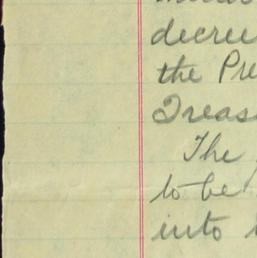 decree
the Pre
Treas
The
to be
into